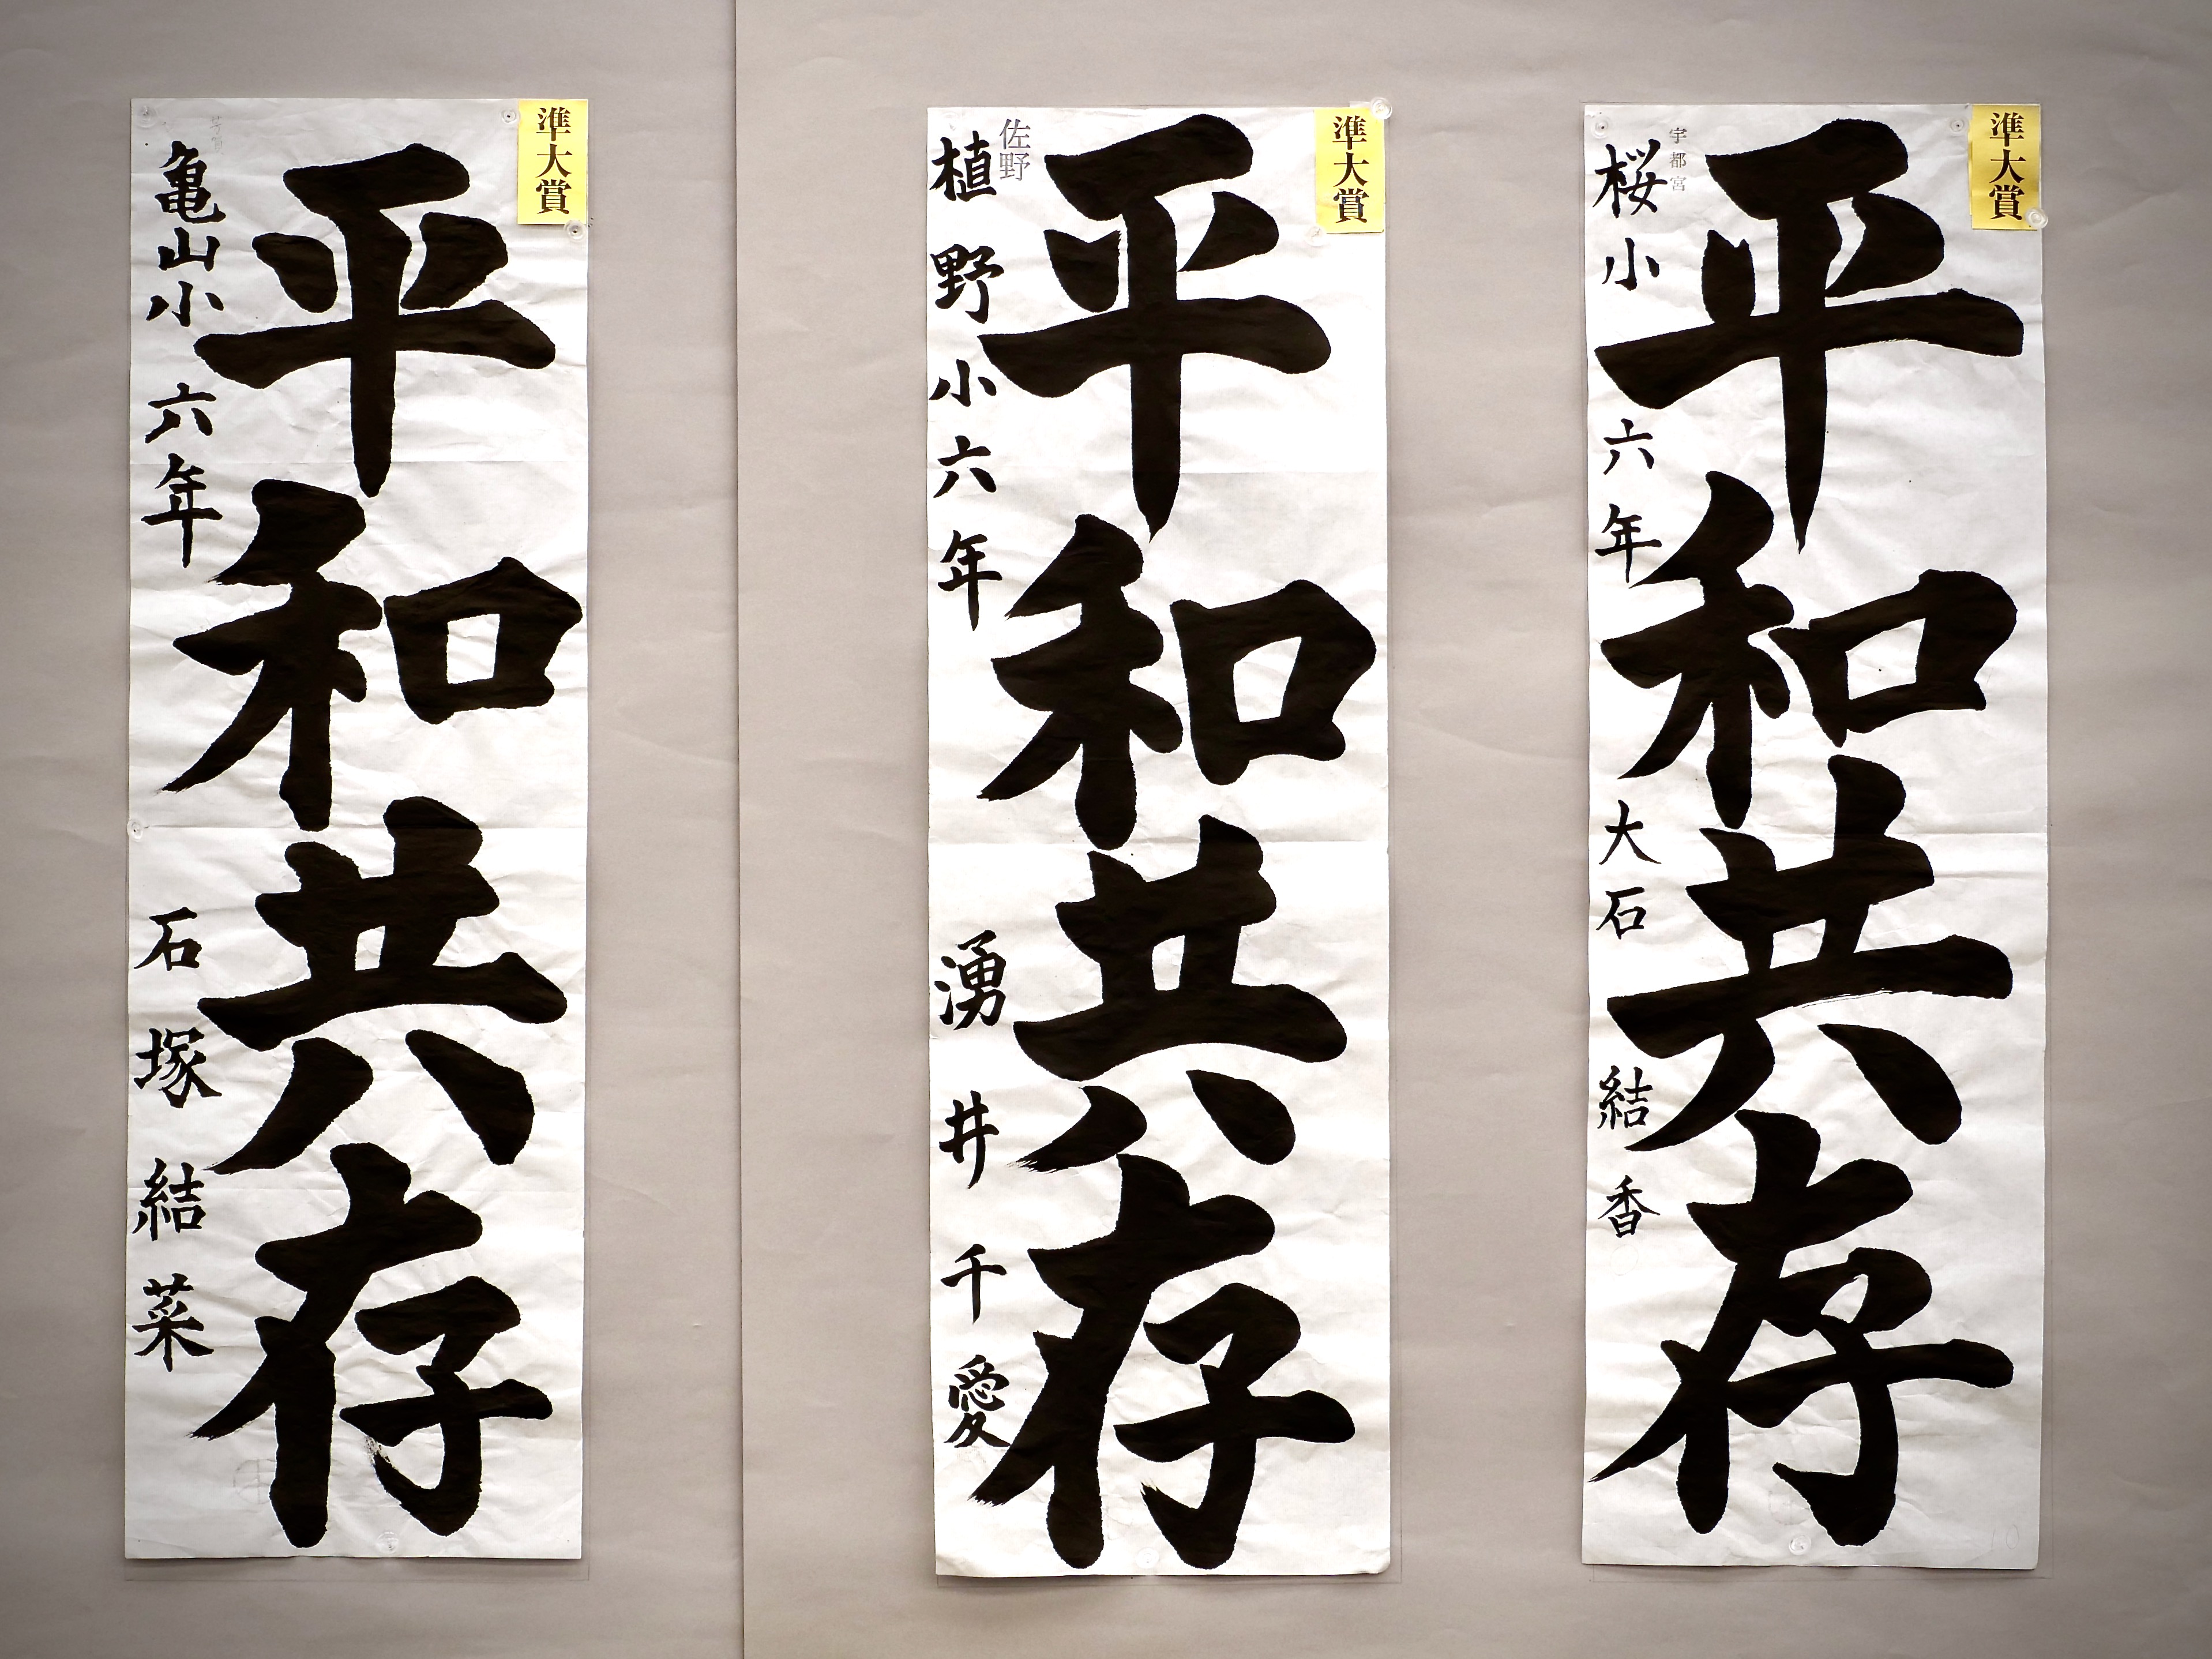 準大賞
平和共存
宇都宮
桜小六年 大石結香
準大賞
平和共存
佐野
植野小六年 湧井千愛
準大賞
平和共存
亀山小六年 石塚結菜